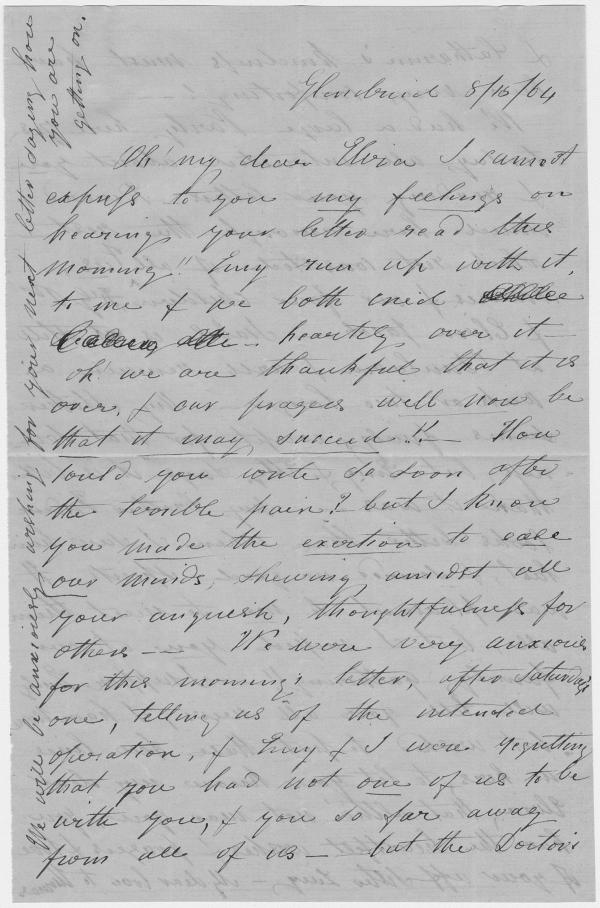 Glendruid 8/16/64
Oh! my dear Elvia I cannot
express to you my feelings on
hearing your letter read this
morning!! Emy run up with it,
to me & we both cried
heartily over it —
oh we are thankful that it is
over, & our prayers will now be
that it may succeed!! — How
could you write so soon after
the terrible pain? but I know
you made the exertion to ease
our minds, shewing amidst all
your anguish, thoughtfulness for
others — — We were very anxious
for this morning's letter, after Saturday's
one, telling us of the intended
operation, & Emy & I were regretting
that you had not one of us to be
with you, & you so far away
from all of us — but the Doctor's
We will be anxiously wishing for your next letter saying how
you are
getting on.